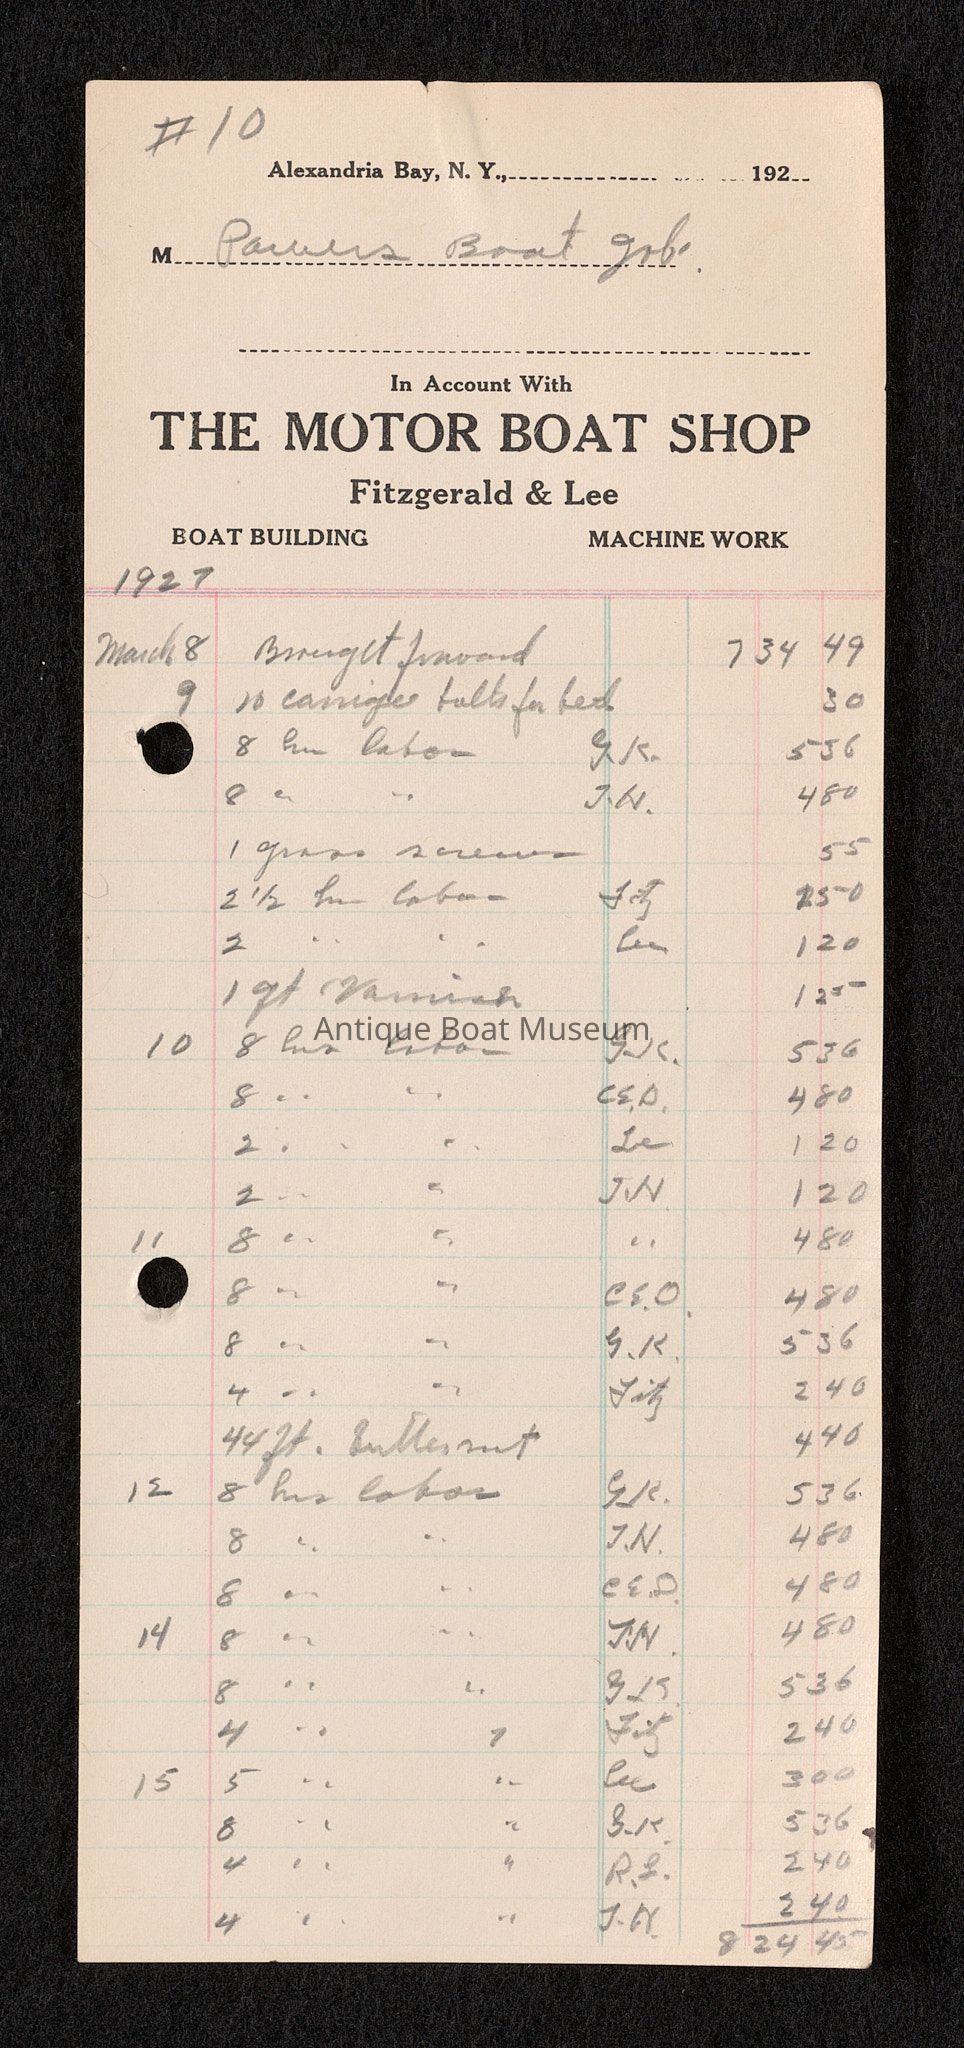 #10
Alexandria Bay, N. Y., 192
M Powers Boat Job.
In Account With
THE MOTOR BOAT SHOP
Fitzgerald & Lee
BOAT BUILDING MACHINE WORK
1927
March 8 Brought forward 734 49
9 10 carriage bolts for bed 30
8 hrs labor G.K. 536
8 " " J.N. 480
1 gross screws 55
2 1/2 hrs labor Fitz 150
2 " " Lee 120
1 qt Varnish 125
Antique Boat Museum
10 8 hrs labor G.K. 536
8 " " C.E.D. 480
2 " " Lee 120
2 " " J.N. 120
11 8 " " " 480
8 " " C.E.D. 480
8 " " G.K. 536
4 " " Fitz 240
44 ft. Butternut 440
12 8 hrs labor G.K. 536
8 " " J.N. 480
8 " " C.E.D. 480
14 8 " " J.N. 480
8 " " G.K. 536
4 " " Fitz 240
15 5 " " Lee 300
8 " " G.K. 536
4 " " R.L. 240
4 " " J.N. 240
824 45